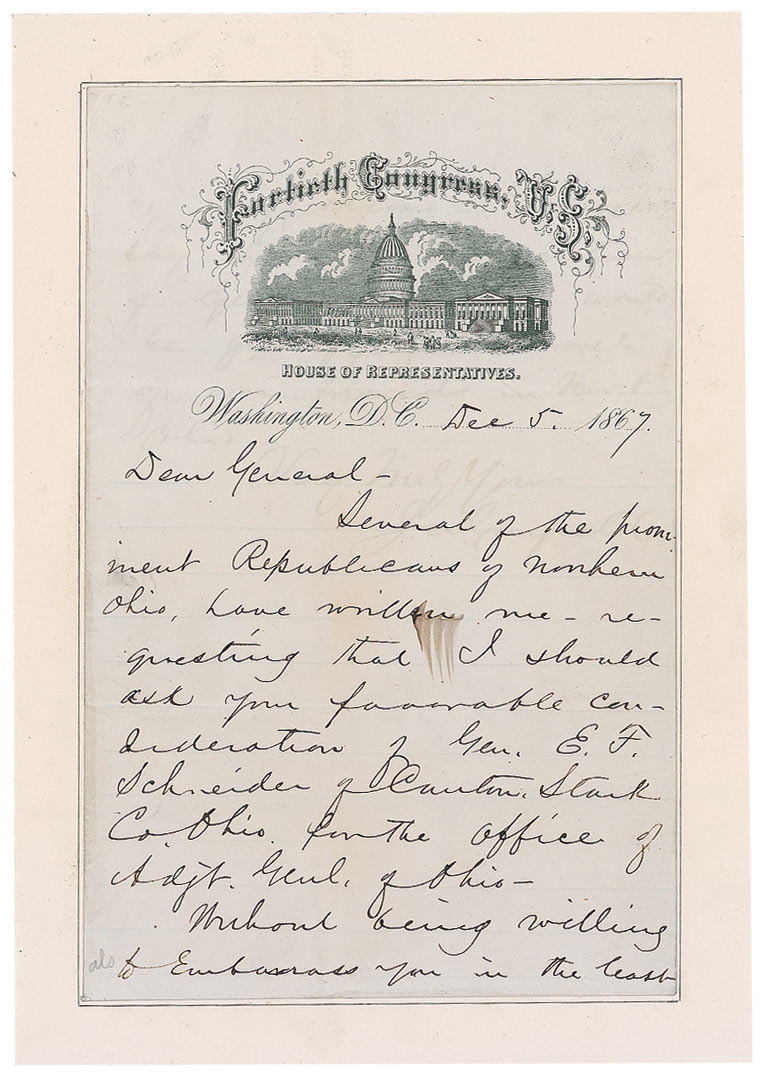 Fortieth Congress, U.S.
HOUSE OF REPRESENTATIVES.
Washington, D.C. Dec 5. 1867.
Dear General –
Several of the prom-
inent Republicans of Northern
Ohio, have written me – re-
questing that I should
ask your favorable con-
sideration of Gen. E. F.
Schneider of Canton, Stark
Co. Ohio. for the office of
Adjt. Genl. of Ohio –
Without being willing
to Embarrass you in the least